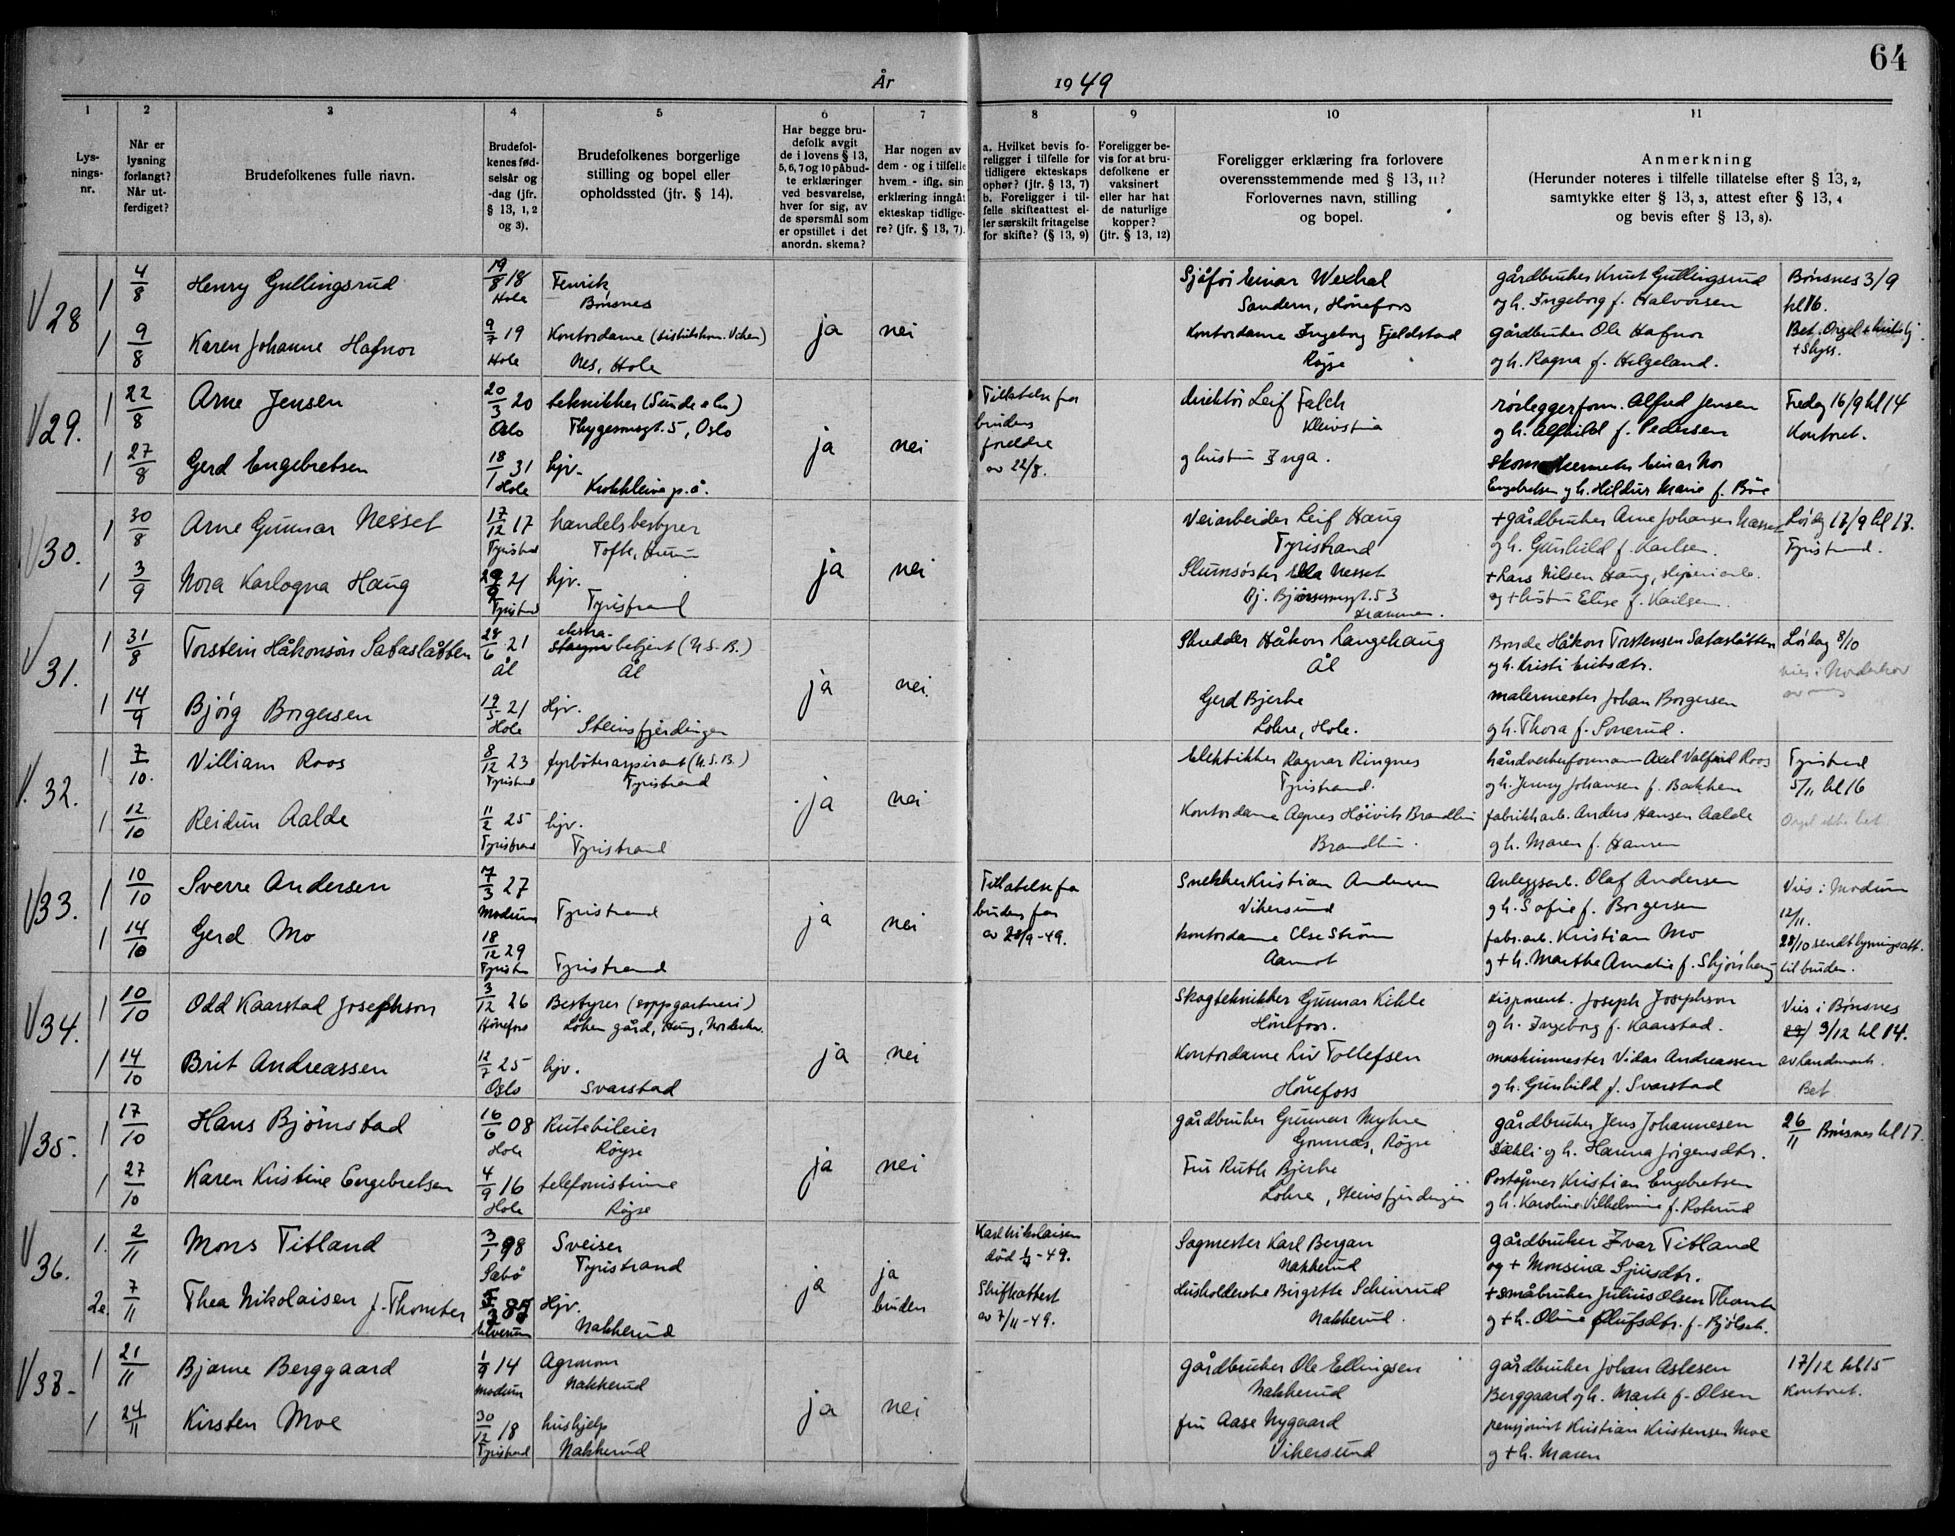 64
År 1949
1 2 3 4 5 6 7 8 9 10 11
Lysningsnr.
Når er lysning forlangt? Når utferdiget?
Brudefolkenes fulle navn.
Brudefolkenes fødselsår og -dag (jfr. § 13, 1, 2 og 3).
Brudefolkenes borgerlige stilling og bopel eller opholdssted (jfr. § 14).
Har begge brudefolk avgit de i lovens § 13, 5, 6, 7 og 10 påbudte erklæringer ved besvarelse, hver for sig, av de spørsmål som er opstillet i det anordn. skema?
Har nogen av dem - og i tilfelle hvem - iflg. sin erklæring inngåt ekteskap tidligere? (jfr. § 13, 7).
a. Hvilket bevis foreligger i tilfelle for tidligere ekteskaps ophør? (jfr. § 13, 7) b. Foreligger i tilfelle skifteattest eller særskilt fritagelse for skifte? (§ 13, 9)
Foreligger bevis for at brudefolkene er vaksinert eller har hat de naturlige kopper? (jfr. § 13, 12)
Foreligger erklæring fra forlovere overensstemmende med § 13, 11? Forlovernes navn, stilling og bopel.
Anmerkning (Herunder noteres i tilfelle tillatelse efter § 13, 2, samtykke efter § 13, 3, attest efter § 13, 4 og bevis efter § 13, 8).
V 28 1 4/8 Henry Gullingsrud 19/8 18 Fenrik Sjåfør Einar Wexhal gårdbruker Knut Gullingsrud Bønsnes 3/9
Hole Bønsnes Sandern, Hönefoss og h. Ingeborg f. Halvorsen kl 16.
1 9/8 Karen Johanne Hafnor 9/7 19 Kontordame ja nei Kontordame Ingeborg Fjeldstad gårdbruker Ole Hafnor Bet. Orgel
Hole Nes, Hole Røyse og h. Ragna f. Helgeland. + Skyss.
V 29. 1 22/8 Arne Jensen 20/3 20 tekniker (Sunde & Co) Tillatelse fra direktør Leif Falch rørleggerform. Alfred Jensen Fredag 16/9 kl 14
Oslo Thygesensgt. 5, Oslo ja nei brudens Kleivstua og h. Alfhild f. Pedersen Kontoret.
1 27/8 Gerd Engebretsen 18/1 31 hjv. foreldre g hustru Inga. Einar
Hole Krokkleiva p.å. av 22/8. Engebretsen g h. Hildur Marie f. Bøe
V 30. 1 30/8 Arne Gunnar Nesset 17/12 17 handelsbestyrer Veiarbeider Leif Haug + gårdbruker Arne Johansen Næsset Lördag 17/9 kl 17.
Tyristrand Tofte, Hurum Tyristrand og h. Gunhild f. Karlsen. Tyristrand.
1 3/9 Nora Karlogna Haug 21 hjv. ja nei Ella Nesset + Lars Nilsen Haug,
Tyristrand Tyristrand Bj. Bjørnsonsgt. 53 og + hustru Elise f. Karlsen.
Drammen.
V 31. 1 31/8 Torstein Håkonson Sataslåtten 28/6 21 ekstra-betjent (N.S.B.) Skredder Håkon Langehaug Bonde Håkon Torstensen Sataslåtten Lördag 8/10
Ål Ål Ål og h. Kristi Eriksdtr. vies i Norderhov
1 14/9 Bjørg Borgersen 17/5 21 Hjv. ja nei. Gerd Bjerke malermester Johan Borgersen
Hole Steinsfjerdingen Lohre, Hole. g h. Thora f. Sonerud.
V. 32. 1 7/10. Villiam Roos 8/12 23 fyrbøteraspirant (N.S.B.) Elektriker Ragnar Ringnes håndverkerformann Axel Valfrid Roos Tyristrand
Tyristrand Tyristrand Tyristrand. g h. Jenny Johansen f. Bakken 5/11 kl 16
1 12/10 Reidun Aalde 11/2 25 hjv. ja nei Kontordame Agnes Höivik Brandlin fabrikkarb. Anders Hansen Aalde Orgel ikke bet
Tyristrand Tyristrand Brandlin. g h. Maren f. Hansen
V 33. 1 10/10 Sverre Andersen 7/3 27 Tillatelse fra Snekker Kristian Andersen Anleggsarb. Olaf Andersen Vies i Modum
Modum Tyristrand brudens far Vikersund g h. Sofie f. Borgersen 12/11.
1 14/10 Gerd Mo 18/12 29 ja nei av 28/9-49. kontordame Else Strøm fabr.arb. Kristian Mo 28/10 sendt lysningsatt.
Tyristr Tyristrand Aamot g + h. Marthe Amalie f. Skjørshaug til bruden.
V 34. 1 10/10 Odd Kaarstad Josephson 3/12 26 Bestyrer (soppgartneri) Skogtekniker Gunnar Kihle disponent. Joseph Josephson Vies i Bønsnes
Hönefoss Löken gård, Haug, Norderhov. Hönefoss. g h. Ingeborg f. Kaarstad. 3/12 kl 14.
1 14/10 Brit Andreassen 12/7 25 hjv. ja nei Kontordame Liv Tollefsen maskinmester Vidar Andreassen av Landmark.
Oslo Svarstad Hönefoss g h. Gunhild f. Svarstad Bet.
V 35. 1 17/10 Hans Bjørnstad 16/6 08 Rutebileier gårdbruker Gunnar Myhre gårdbruker Jens Johannesen 26/11 Bønsnes kl 17.
Hole Røyse Gomnæs, Røyse Dæhli og h. Hanna Jörgensdtr.
1 27/10 Karen Kristine Engebretsen 4/9 16 telefonistinne ja nei Fru Ruth Bjerke Poståpner Kristian Engebretsen
Hole Røyse Lohre, Steinsfjerdingen g h. Karoline Vilhelmine f. Roterud
V 36. 1. 2/11 Mons Titland 3/1 98 Sveiser Karl Nikolaisen Sagmester Karl Bergan gårdbruker Ivar Titland
Sæbö Tyristrand død -49. Nakkerud og + Monsina Sjursdtr.
2e. 7/11 Thea Nikolaisen f. Thomter Hjv. ja ja bruden Skifteattest Husholderske Birgitte Scheinrud + småbruker Julius Olsen Thomte
Elverum Nakkerud av 7/11-49. Nakkerud. g + h. Oline Olufsdtr. f. Bjölset.
V 38- 1 21/11 Bjarne Berggaard 14 Agronom gårdbruker Ole Ellingsen gårdbruker Johan Aslesen 17/12 kl 15
Modum Nakkerud Nakkerud Berggaard og h. Marte f. Olsen Kontoret.
1 24/11 Kirsten Moe 30/12 18 hushjelp ja nei fru Aase Nygaard pensjonist Kristian Kristensen Moe
Tyristrand Nakkerud Vikersund g + h. Maren